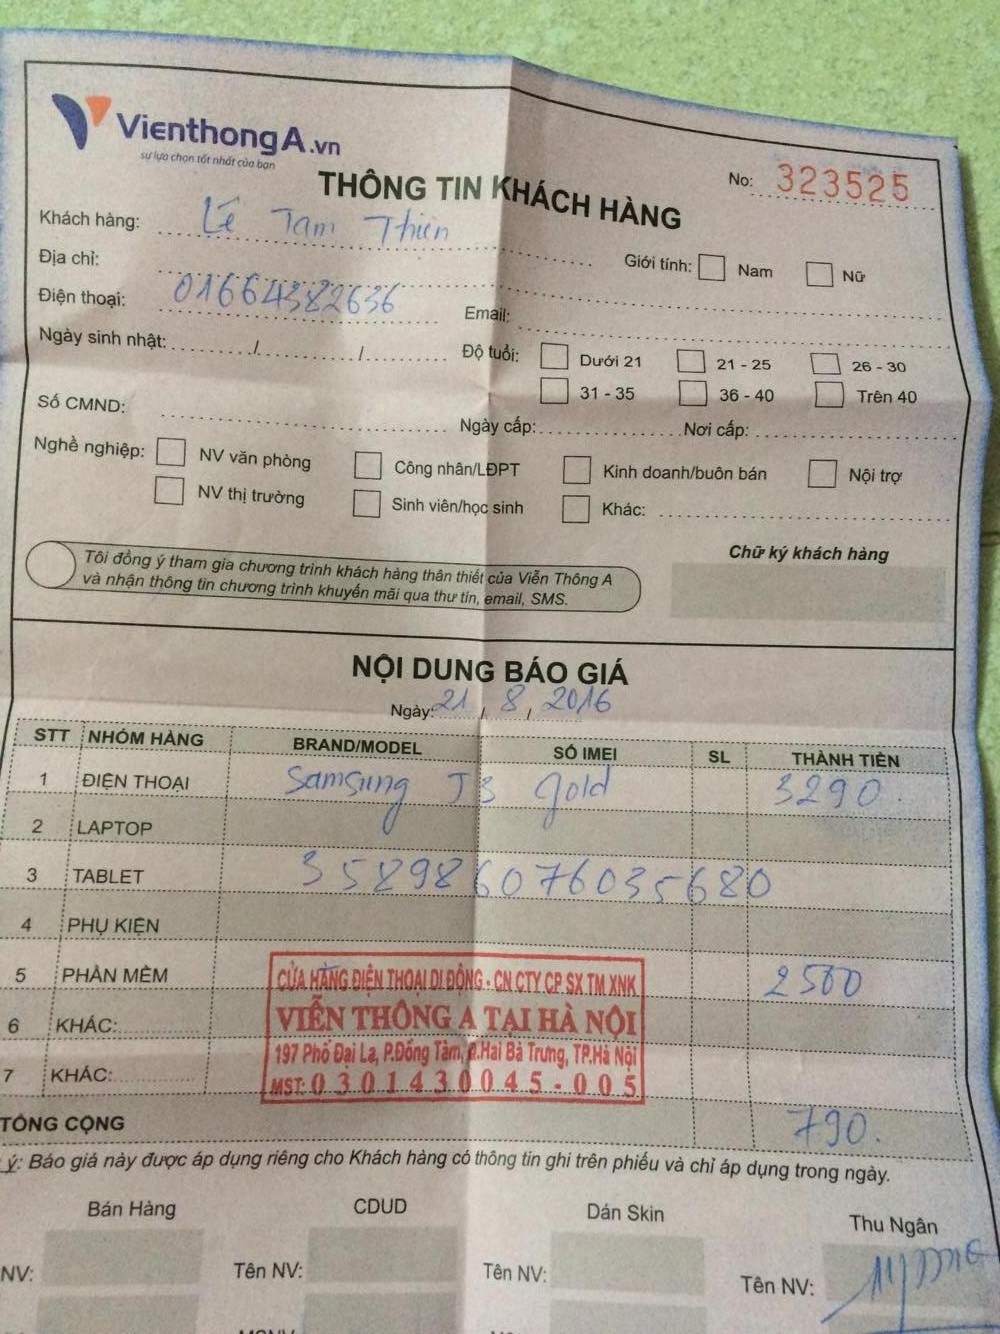 VienthongA.vn
sự lựa chọn tốt nhất của bạn
No: 323525
THÔNG TIN KHÁCH HÀNG
Khách hàng: Lê Tam Thien
Giới tính: Nam Nữ
Địa chỉ:
Điện thoại: 01664382636 Email:
Ngày sinh nhật: / / Độ tuổi: Dưới 21 21 - 25 26 - 30
31 - 35 36 - 40 Trên 40
Số CMND: Ngày cấp: Nơi cấp:
Nghề nghiệp: NV văn phòng Công nhân/LĐPT Kinh doanh/buôn bán Nội trợ
NV thị trường Sinh viên/học sinh Khác:
Tôi đồng ý tham gia chương trình khách hàng thân thiết của Viễn Thông A
và nhận thông tin chương trình khuyến mãi qua thư tín, email, SMS.
Chữ ký khách hàng
NỘI DUNG BÁO GIÁ
Ngày: 21 / 8 / 2016
STT NHÓM HÀNG BRAND/MODEL SỐ IMEI SL THÀNH TIỀN
1 ĐIỆN THOẠI Samsung J3 gold 3290
2 LAPTOP
3 TABLET 358986076035680
4 PHỤ KIỆN
5 PHẦN MỀM 2500
6 KHÁC:
7 KHÁC:
CỬA HÀNG ĐIỆN THOẠI DI ĐỘNG - CN CTY CP SX TM XNK
VIỄN THÔNG A TẠI HÀ NỘI
197 Phố Đại La, P.Đồng Tâm, Q.Hai Bà Trưng, TP.Hà Nội
MST: 0301430045-005
TỔNG CỘNG 790.
ý: Báo giá này được áp dụng riêng cho Khách hàng có thông tin ghi trên phiếu và chỉ áp dụng trong ngày.
Bán Hàng CDUD Dán Skin Thu Ngân
NV: Tên NV: Tên NV: Tên NV: